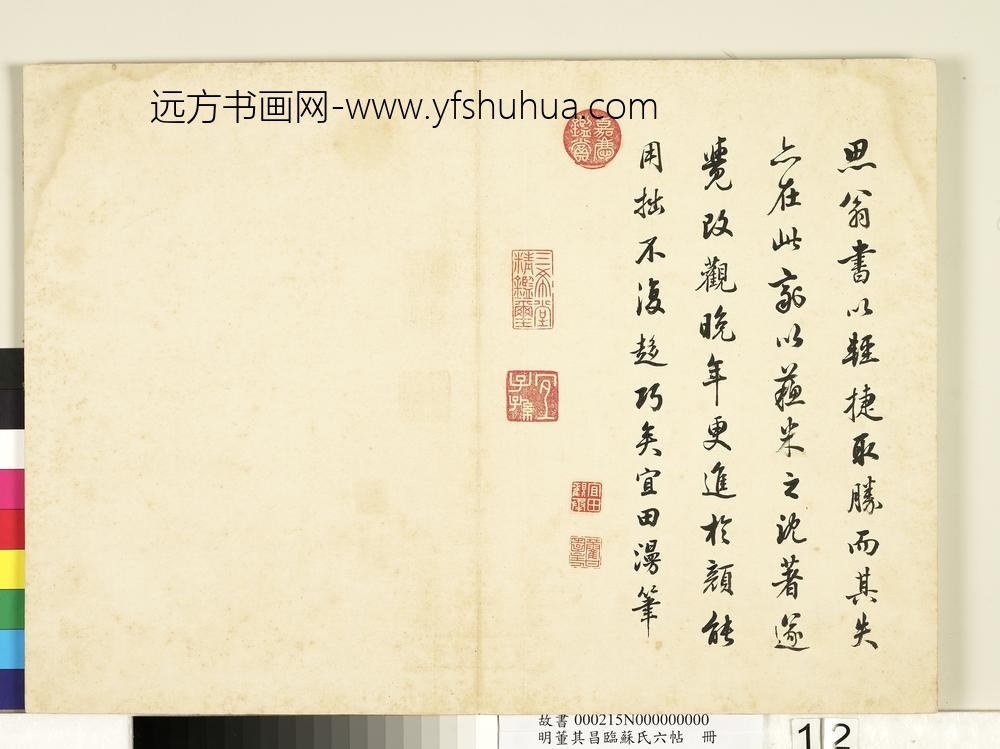 远方书画网-www.yfshuhua.com
思翁書以輕捷取勝而其失
亦在此以蘇米之沈著遂
覺改觀晚年更進於顏能
用拙不復趍巧矣宜田漫筆
嘉慶鑑賞
三希堂精鑑璽
宜子孫
故書 000215N000000000
明董其昌臨蘇氏六帖 冊
12